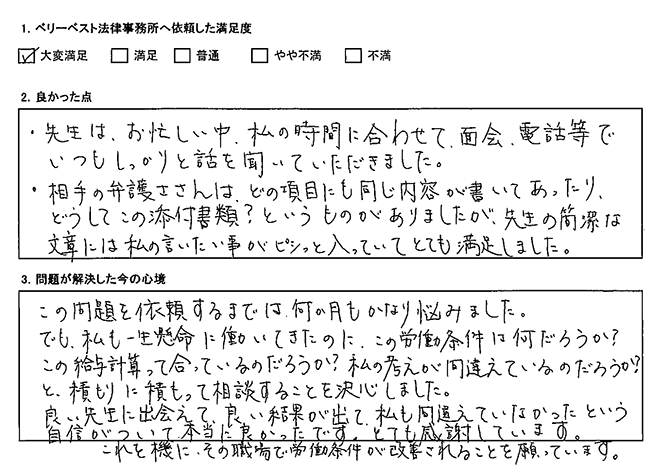 1. ベリーベスト法律事務所へ依頼した満足度
☑大変満足 □満足 □普通 □やや不満 □不満
2. 良かった点
・先生は、お忙しい中、私の時間に合わせて、面会、電話等で
いつもしっかりと話を聞いていただきました。
・相手の弁護士さんは、どの項目にも同じ内容が書いてあったり、
どうしてこの添付書類？というものがありましたが、先生の簡潔な
文章には私の言いたい事がピシッと入っていてとても満足しました。
3. 問題が解決した今の心境
この問題を依頼するまでは、何か月もかなり悩みました。
でも、私も一生懸命に働いてきたのに、この労働条件は何だろうか？
この給与計算って合っているのだろうか？私の考えが間違えているのだろうか？
と、積もりに積もって相談することを決心しました。
良い先生に出会えて、良い結果が出て、私も間違えていなかったという
自信がついて本当に良かったです。とても感謝しています。
これを機に、その職場で労働条件が改善されることを願っています。